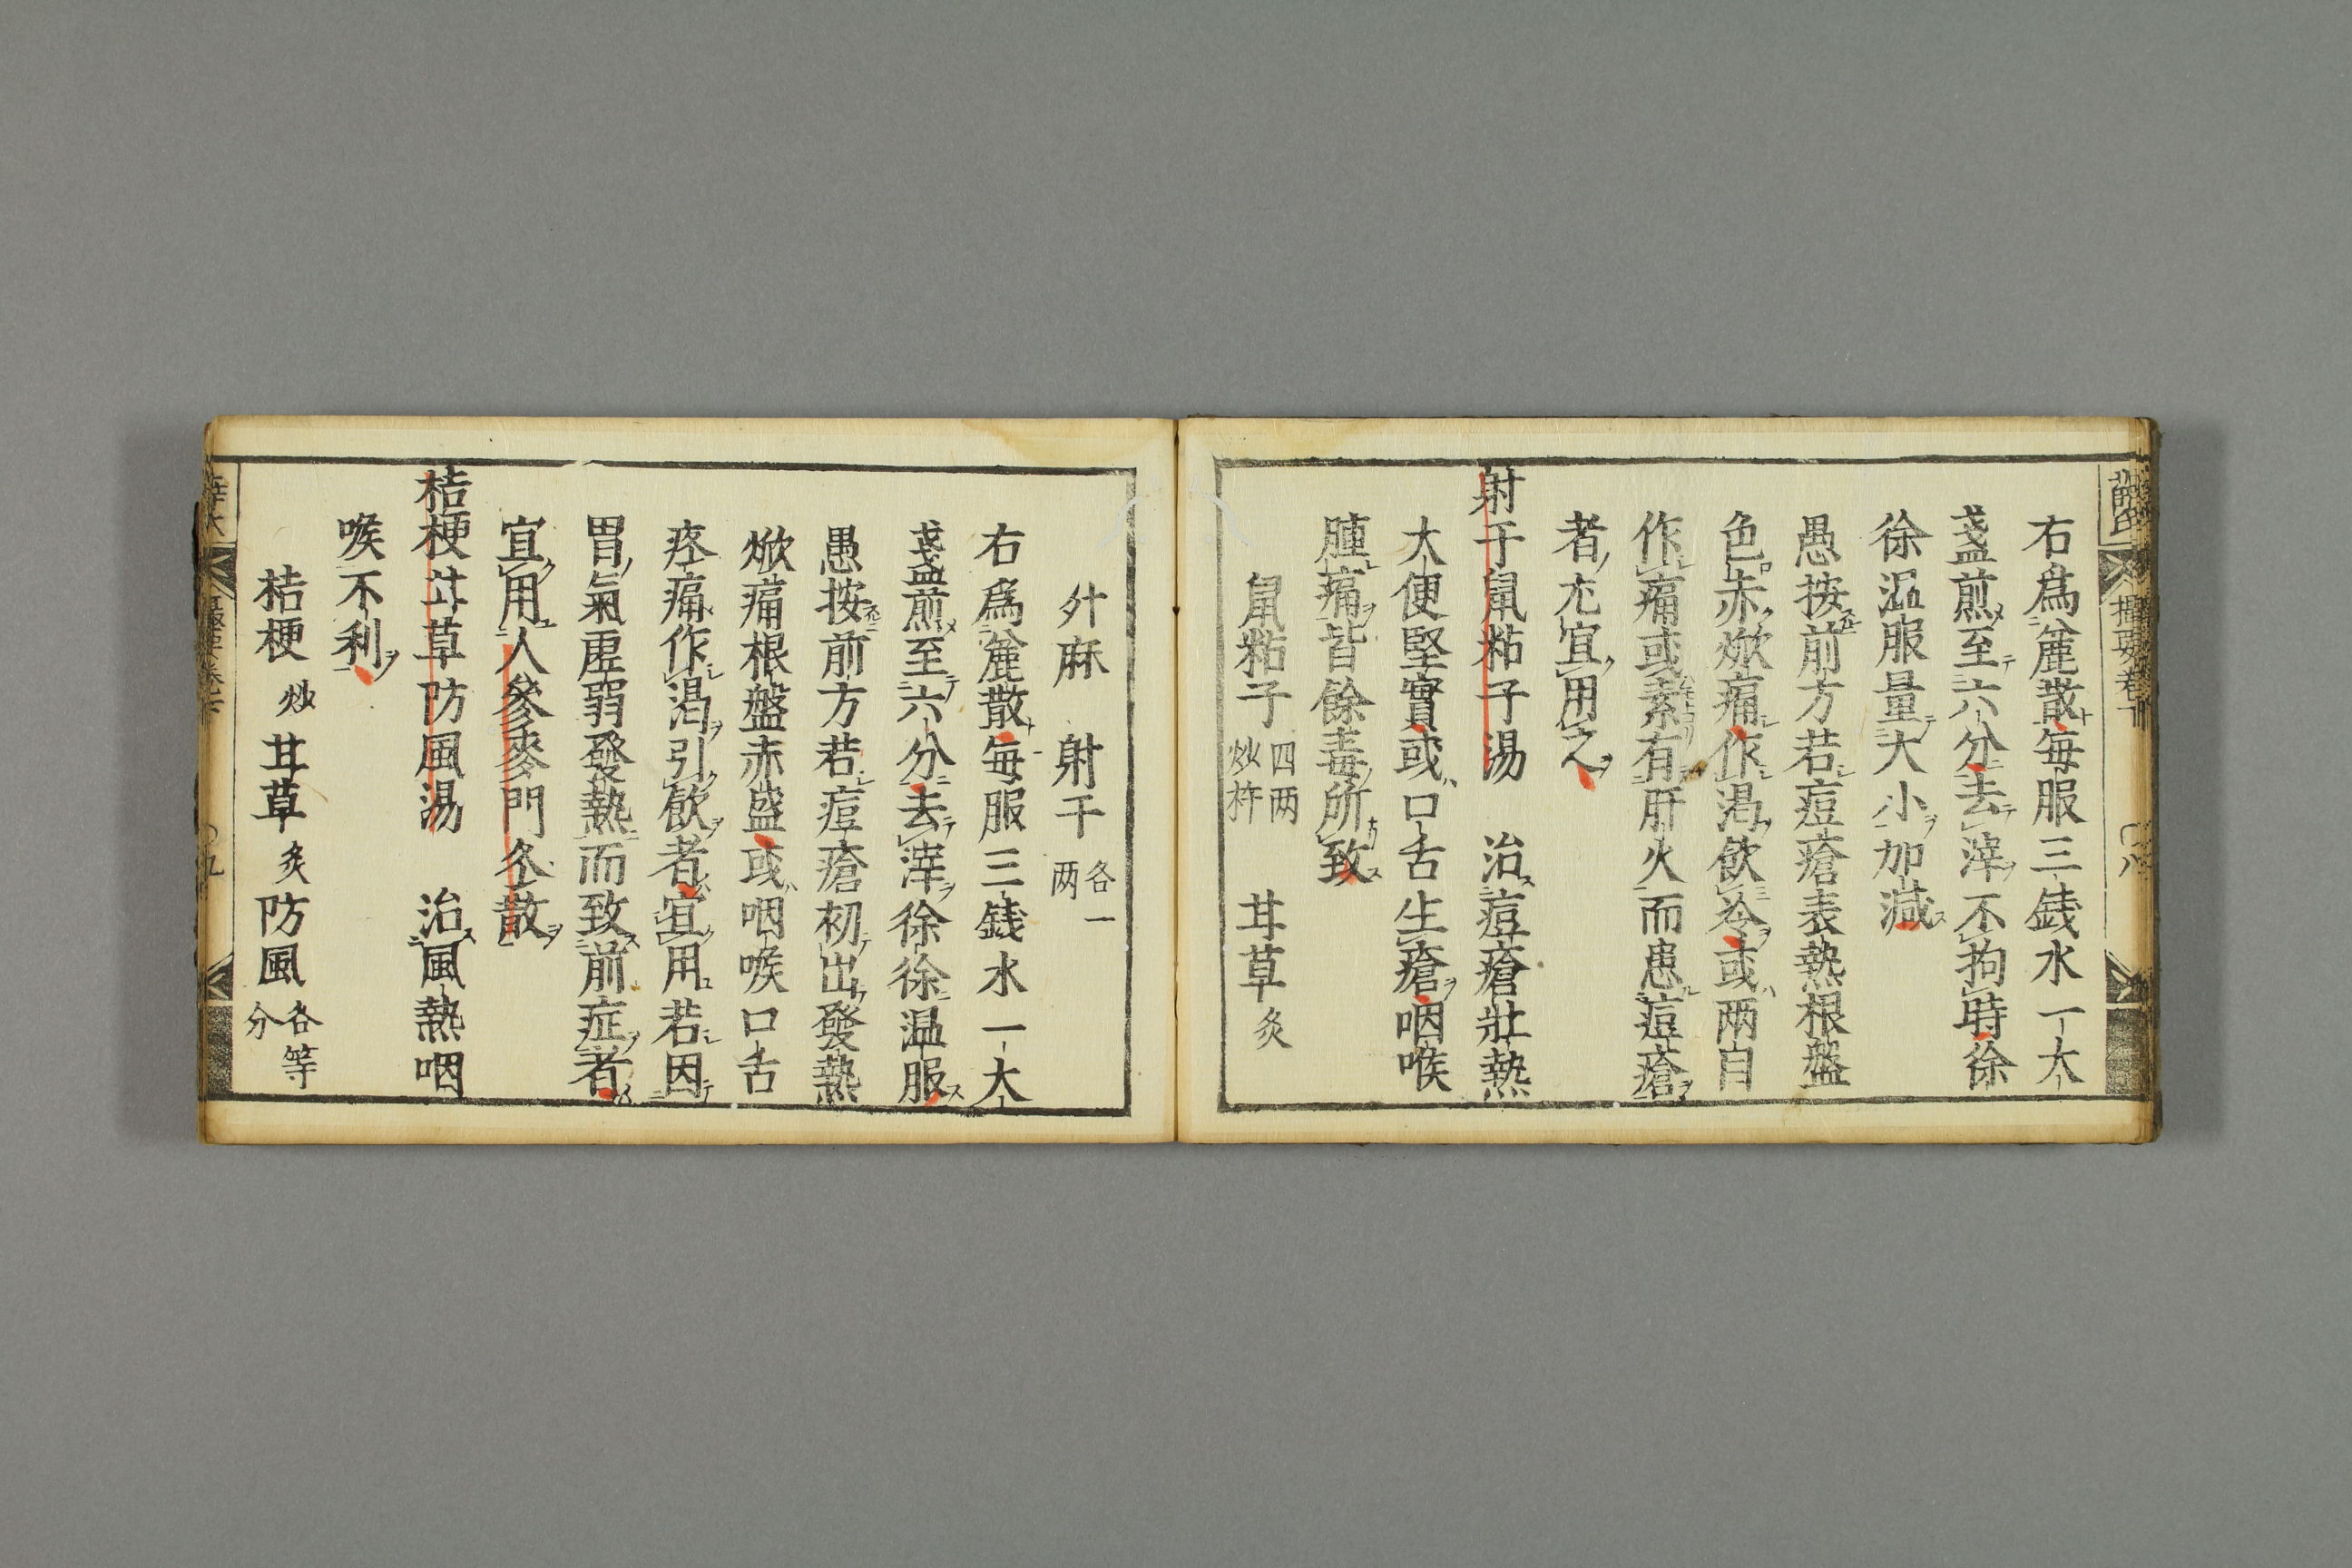 右爲麄散毎服三銭水一大
盞煎至六分去滓不拘時徐
徐温服量大小加減
愚按前方若痘瘡表熱根盤
色赤焮痛作渴飲冷或两自
作痛或素有肝火而患痘瘡
者尤宜用之
射干鼠粘子湯 治痘瘡壯熱
大便堅實或口舌生瘡咽喉
腫痛皆餘毒所致
鼠粘子 四两炒杵 甘草 炙
升麻 射干 各一两
右爲麄散毎服三銭水一大
盞煎至六分去滓徐徐温服
愚按前方若痘瘡初出發熱
焮痛根盤赤盛或咽喉口舌
疼痛作渴引飲者宜用若因
胃氣虛弱發熱而致前症者
宜用人參麥門冬散
桔梗甘草防風湯 治風熱咽
喉不利
桔梗 炒 甘草 炙 防風 各等分